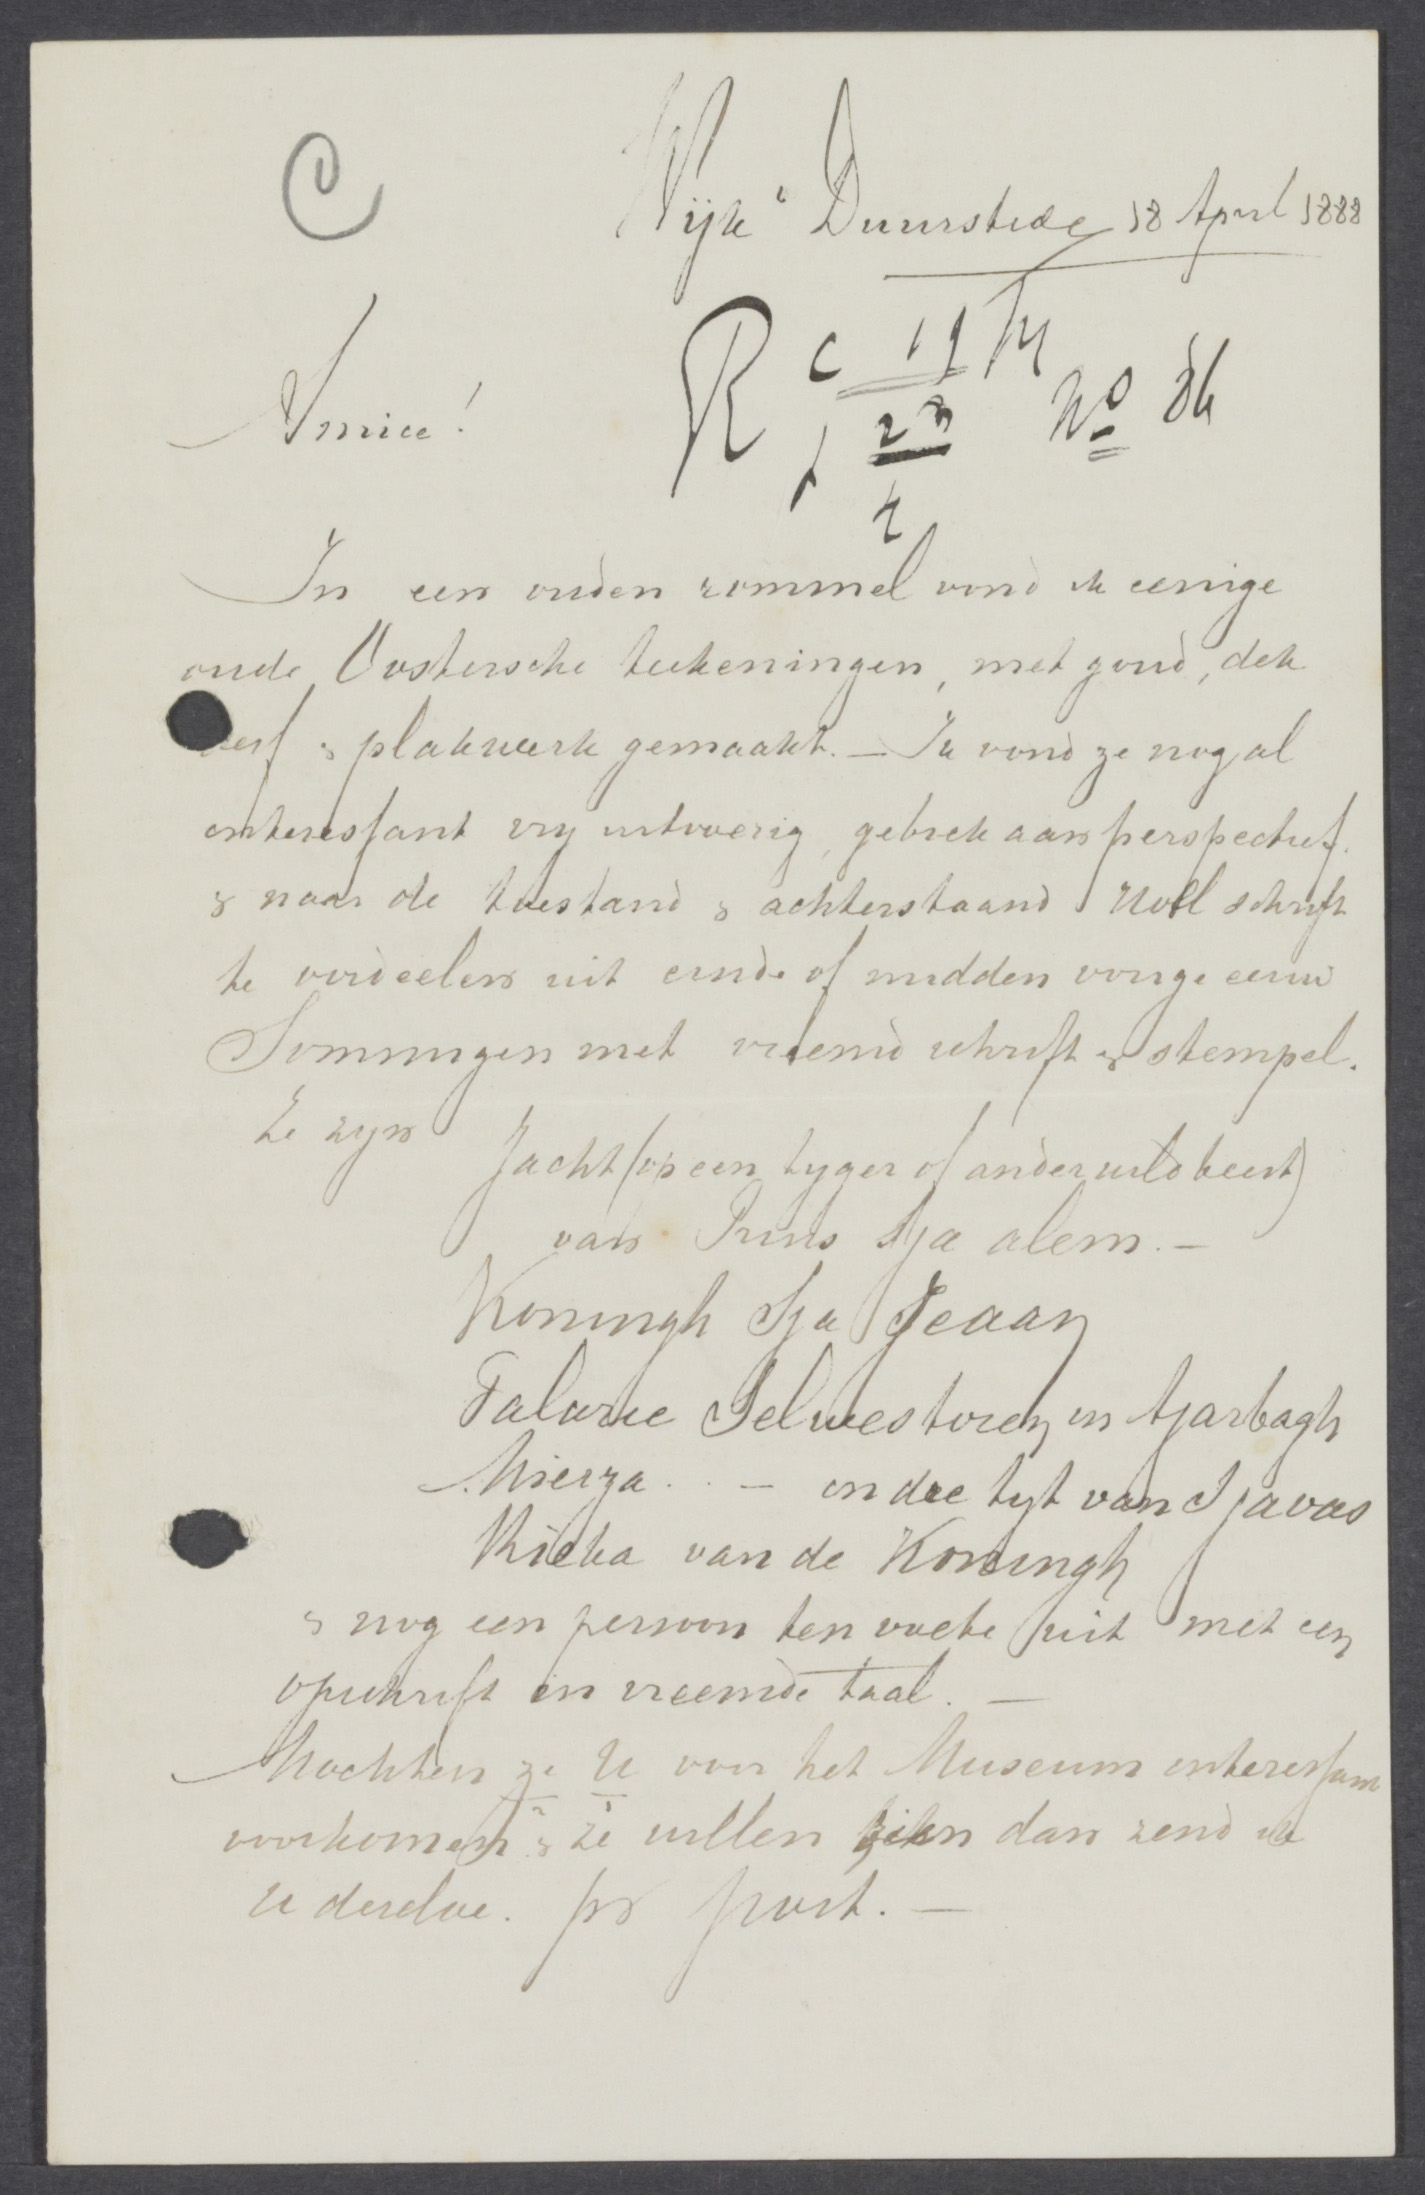 C
Wijk " Duurstede 18 April 1888
Amice!
R
No
In een ouden rommel vond ik eenige
oude Oostersche teekeningen, met goud, dek
verf & plakwerk gemaakt. — Ik vond ze nog al
interessant vry uitvoerig, gebrek aan perspectief.
& naar de toestand & achterstaand Holl schrift
te oordeelen uit einde of midden vorige eeuw
Sommigen met vreemd schrift & stempel.
Ze zyn Jacht (op een tyger of ander wild beest)
van Prins Sja alem. —
Koningh Sja Jeaan
in Tjarbagh
Mierza . . — in die tyt van Sjavas
van de Koningh
& nog een persoon ten voete uit met een
opschrift in vreemde taal. —
Mochten ze U voor het Museum interessant
voorkomen & ze willen zien dan zend ik
U derelve. pr post. —